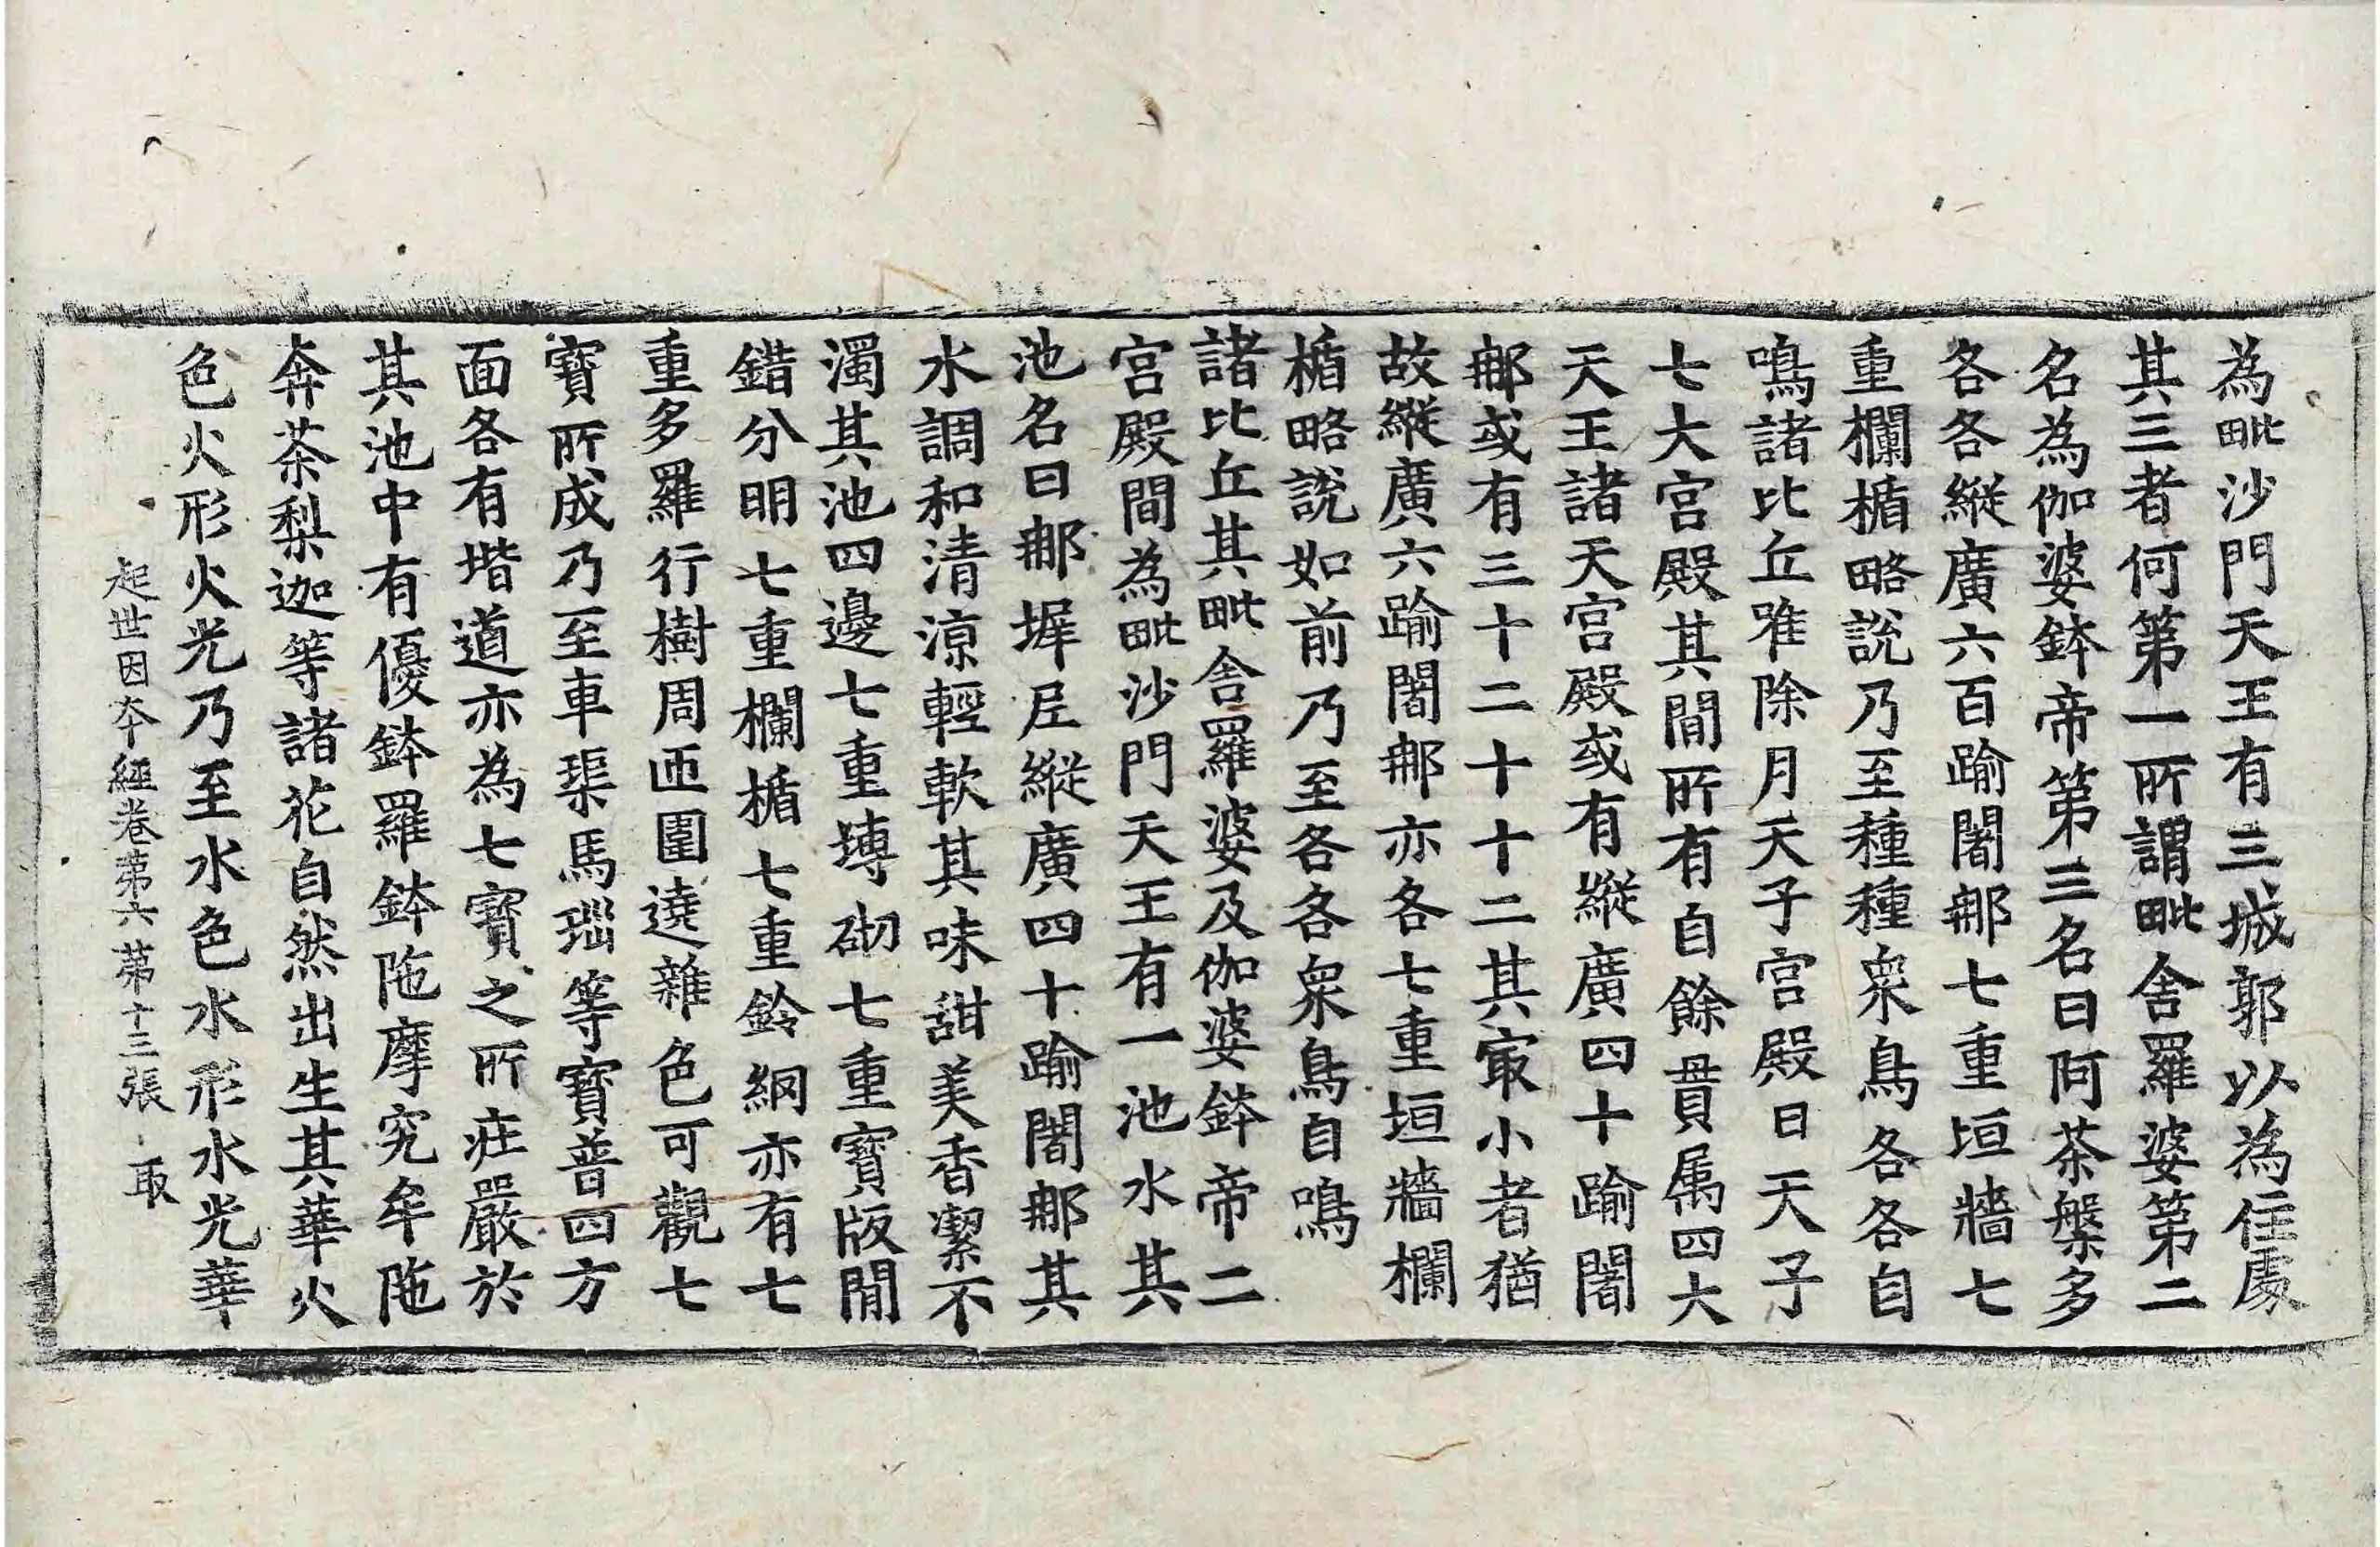 為毗沙門天王有三城郭以為住處
其三者何第一所謂毗舍羅婆第二
名為伽婆鉢帝第三名曰阿茶槃多
各各縱廣六百踰闍那七重垣牆七
重欄楯略說乃至種種衆鳥各各自
鳴諸比丘唯除月天子宮殿日天子
七大宮殿其間所有自餘眷属四大
天王諸天宮殿或有縱廣四十踰闍
那或有三十二十十二其㝡小者猶
故縱廣六踰闍那亦各七重垣牆欄
楯略說如前乃至各各衆鳥自鳴
諸比丘其毗舍羅婆及伽婆鉢帝二
宮殿間為毗沙門天王有一池水其
池名曰那墀尼縱廣四十踰闍那其
水調和清涼輕軟其味甜美香潔不
濁其池四邊七重塼砌七重寶版間
錯分明七重欄楯七重鈴網亦有七
重多羅行樹周匝圍遶雜色可觀七
寶所成乃至車渠馬瑙等寶普四方
面各有堦道亦為七寶之所庄嚴於
其池中有優鉢羅鉢陁摩究牟陁
奔茶梨迦等諸花自然出生其華火
色火形火光乃至水色水形水光華
起世因夲經卷苐六 苐十三張 㝡